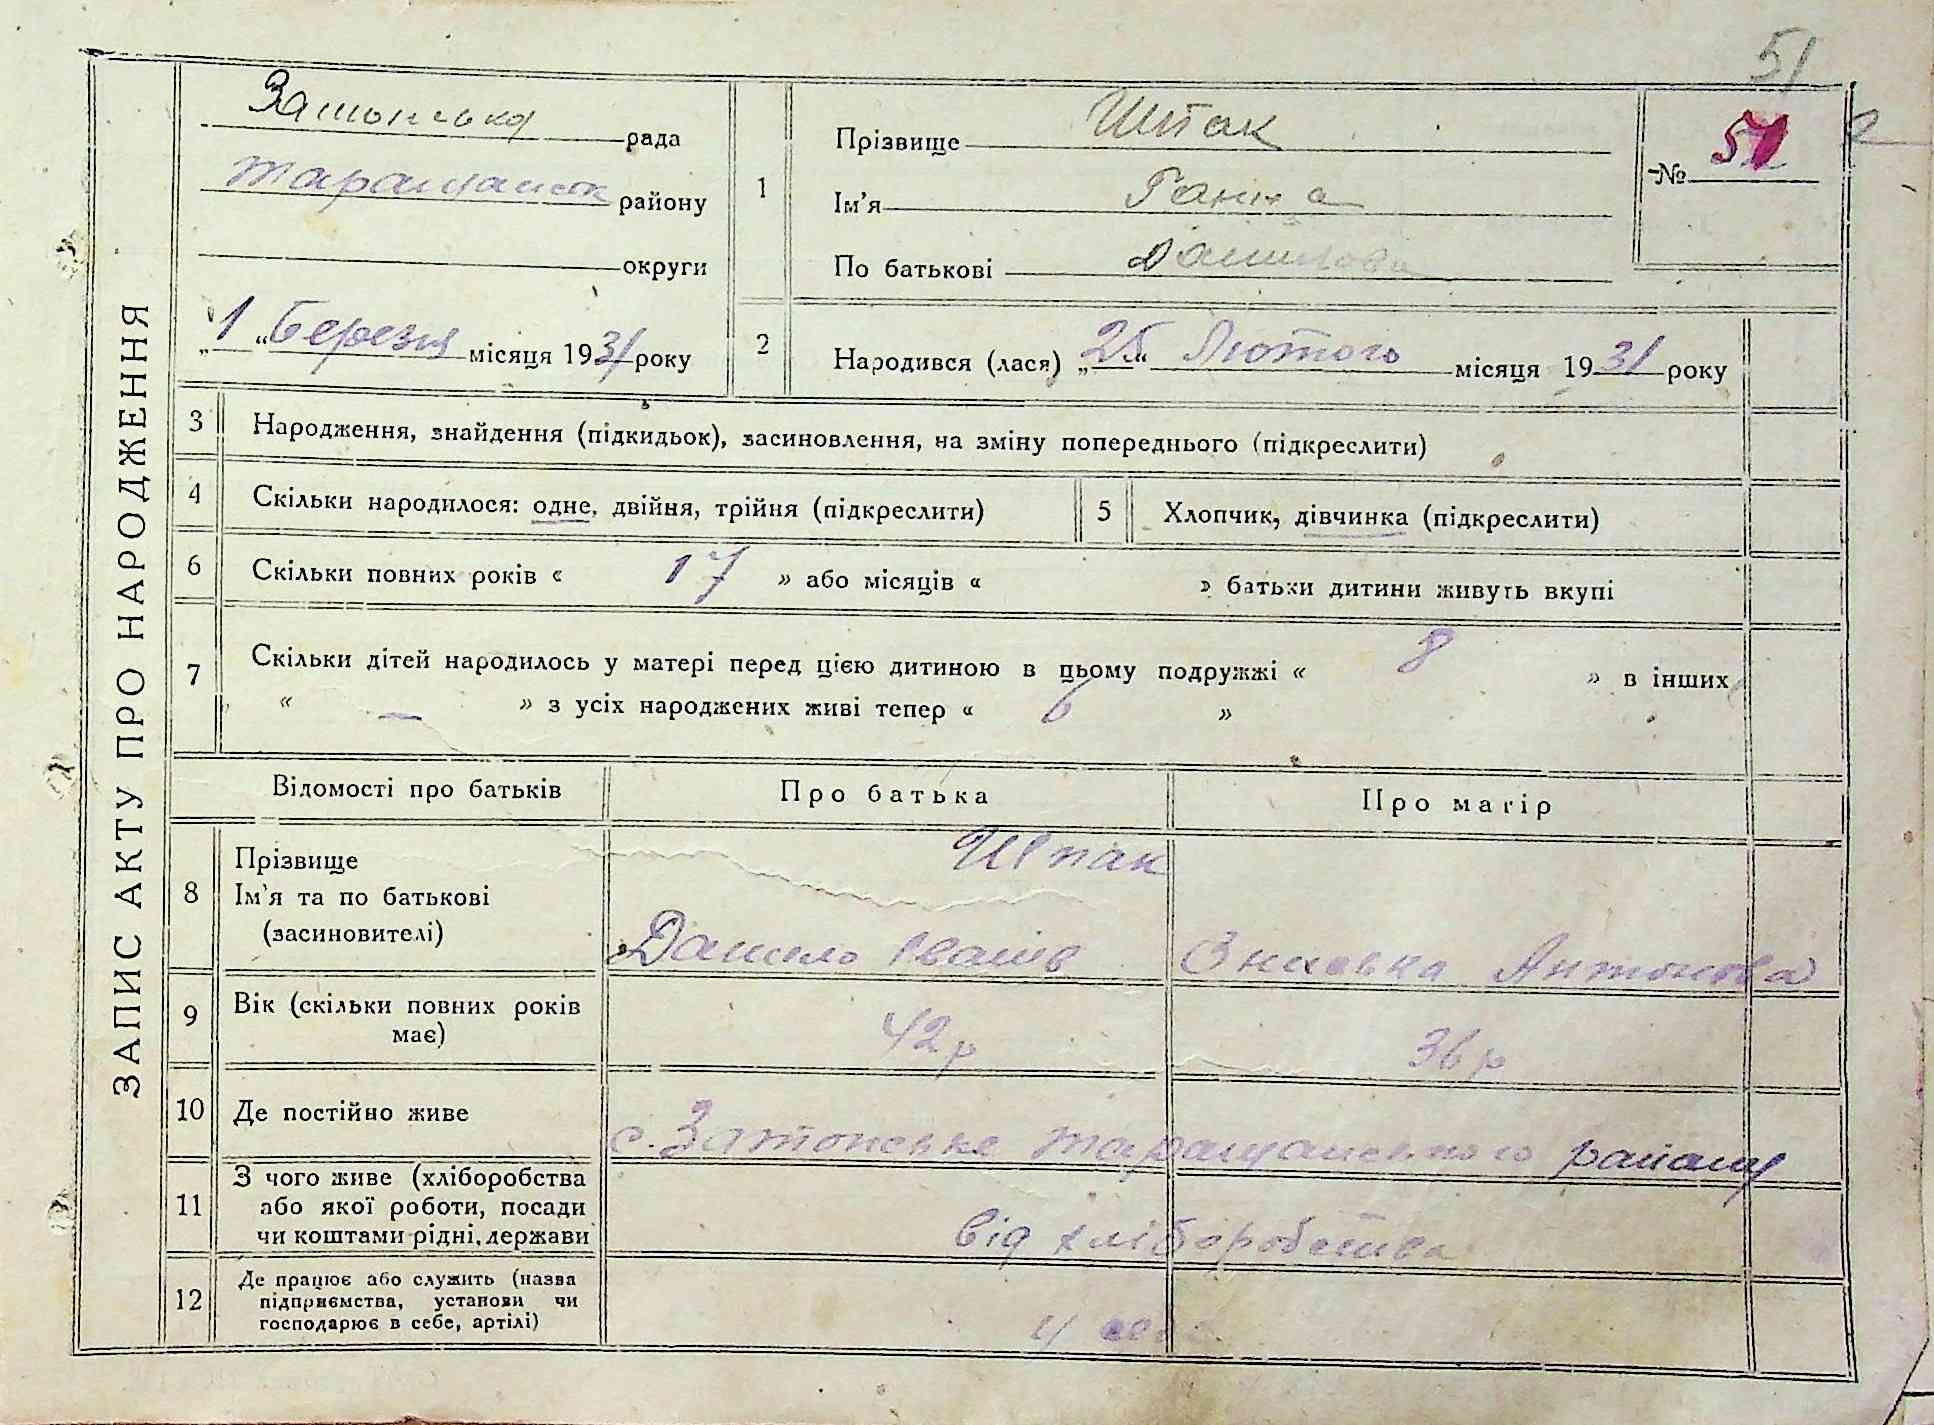 51
ЗАПИС АКТУ ПРО НАРОДЖЕННЯ
рада
Таращанськ району
округи
„1“ Березня місяця 1931 року
1
Прізвище Шпак
Ім'я Ганна
По батькові Данилова
№ 51
2
Народився (лася) „25“ Лютого місяця 1931 року
3 Народження, знайдення (підкидьок), засиновлення, на зміну попереднього (підкреслити)
4 Скільки народилося: одне, двійня, трійня (підкреслити)
5 Хлопчик, дівчинка (підкреслити)
6 Скільки повних років « 17 » або місяців « » батьки дитини живуть вкупі
7 Скільки дітей народилось у матері перед цією дитиною в цьому подружжі « 8 » в інших
« — » з усіх народжених живі тепер « 6 »
Відомості про батьків Про батька Про матір
8 Прізвище
Ім'я та по батькові
(засиновителі)
Шпак
Данило Іванів Антонова
9 Вік (скільки повних років
має)
42 р 36 р
10 Де постійно живе
с. Затонське Таращанського району
11 З чого живе (хліборобства
або якої роботи, посади
чи коштами рідні, держави
від хліборобства
12 Де працює або служить (назва
підприємства, установи чи
господарює в себе, артілі)
у себе